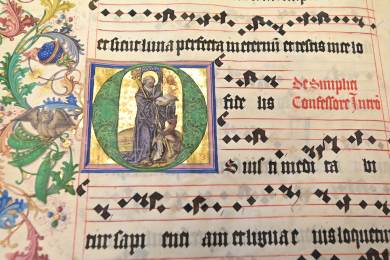 et sicut luna perfecta in eternum et testis in celo
fide lis
De Simplici
Confessore Introi
O
S ius ti medi ta bi
tur sapi enti am et lingua e ius loquetur